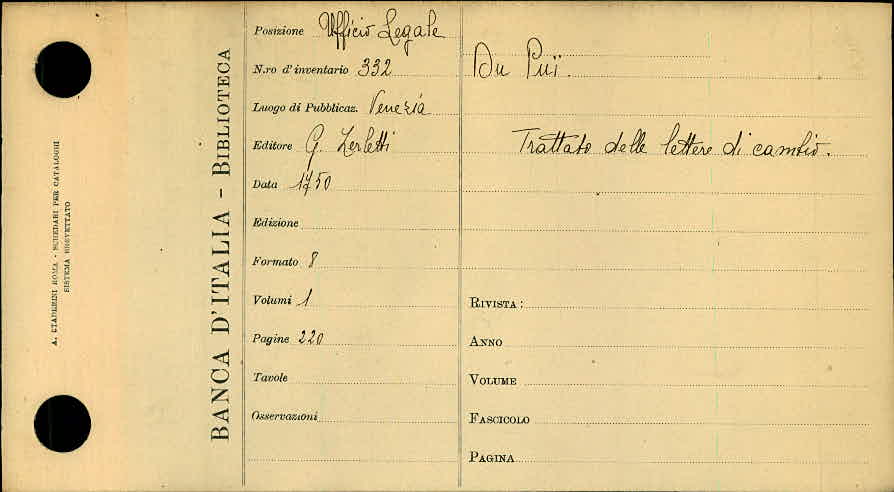 A. STADERINI ROMA - SCHEDARI PER CATALOGHI
SISTEMA BREVETTATO
BANCA D'ITALIA - BIBLIOTECA
Posizione Ufficio Legale
N.ro d'inventario 332
Luogo di Pubblicaz. Venezia
Editore G. Zerletti
Data 1750
Edizione
Formato 8
Volumi 1
Pagine 220
Tavole
Osservazioni
Du Puï.
Trattato delle lettere di cambio.
RIVISTA :
ANNO
VOLUME
FASCICOLO
PAGINA